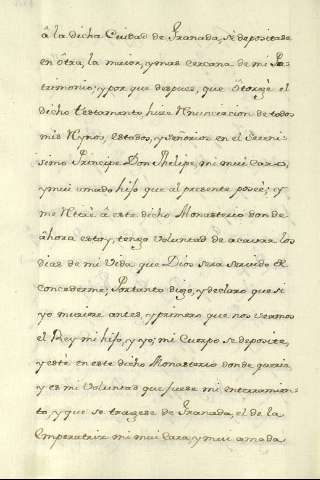 â la dicha Ciudad de Granada, se depositase
en ôtra, la maior, y mas cercana de mi Pa-
trimonio; y por que despues, que ôtorgè el
dicho testamento hize Renunciacion de todos
mis Rynos, estados, y señorios en el Sereni-
simo Principe Don Phelipe, mi mui caro,
y mui amado hijo que al presente posee; y
me retirè â este dicho Monasterio donde
âhora estoy, tengo voluntad de acavar los
dias de mi Vida que Dios sera servido de
concederme; Portanto digo, y declaro que si
yo muriere antes, y primero que nos veamos
el Rey mi hijo, y yo; mi Cuerpo se deposite,
y estè en este dicho Monasterio donde queria,
y es mi Voluntad que fuese mi enterramien-
to, y que se tragese de Granada, el de la
Emperatriz mi mui Cara, y mui amada